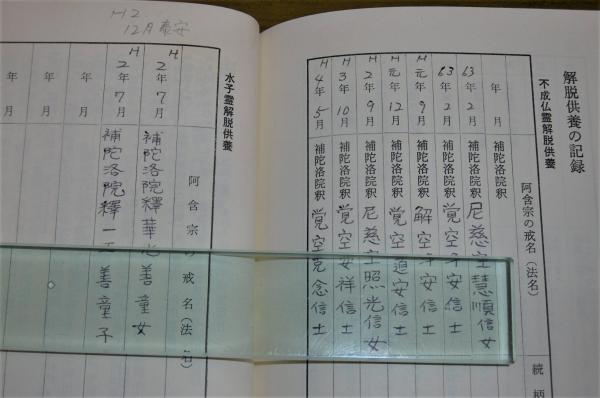 解脱供養の記録
不成仏霊解脱供養
阿含宗の戒名(法名)
続柄
年 月 補陀洛院釈
63年2月 補陀洛院釈 尼慈空慧順信女
63年2月 補陀洛院釈 覚空
安信士
H元年9月 補陀洛院釈 解空
安信士
H元年12月 補陀洛院釈 覚空
安信士
H2年9月 補陀洛院釈 尼慈空照光信女
H3年10月 補陀洛院釈 覚空安祥信士
H4年5月 補陀洛院釈 覚空克念信士
H2
12月 奉安
水子霊解脱供養
阿含宗の戒名(法名)
H2年7月 補陀洛院釋華心善童女
H2年7月 補陀洛院釋一
善童子
年 月
年 月
年 月